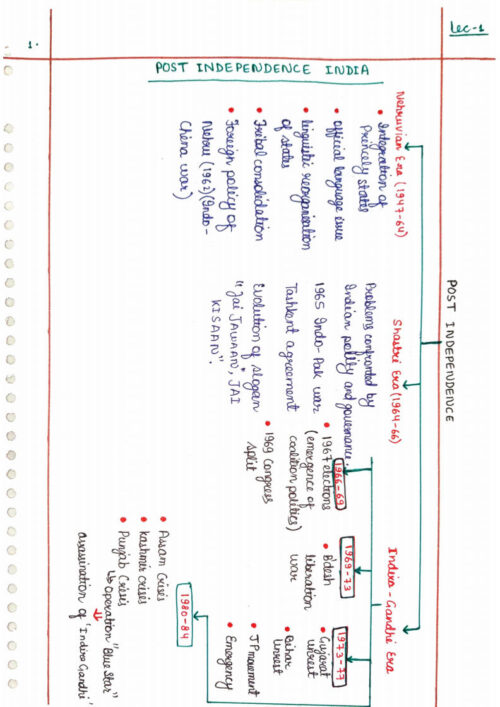 Lec-1
1.
POST INDEPENDENCE INDIA
POST INDEPENDENCE
Nehruvian Era (1947-64)
• Integration of
Princely states
• official language issue
• linguistic reorganisation
of states
• Tribal consolidation
• Foreign policy of
Nehru (1962) (Indo-
China war)
Shastri Era (1964-66)
Problems confronted by
Indian polity and governance.
1965 Indo-Pak war
Tashkent agreement
Evolution of slogan
"Jai JAWAAN, JAI
KISAAN".
Indira-Gandhi Era
1966-69
• 1967 elections
(emergence of
coalition politics)
• 1969 Congress
split
1969-73
• B'desh
liberation
war
1973-77
• Gujarat
unrest
• Bihar
Unrest
• JP movement
• Emergency
1980-84
• Assam Crisis
• Kashmir crisis
• Punjab Crisis
↳ Operation "Blue Star"
↓
assasination of 'Indira Gandhi'